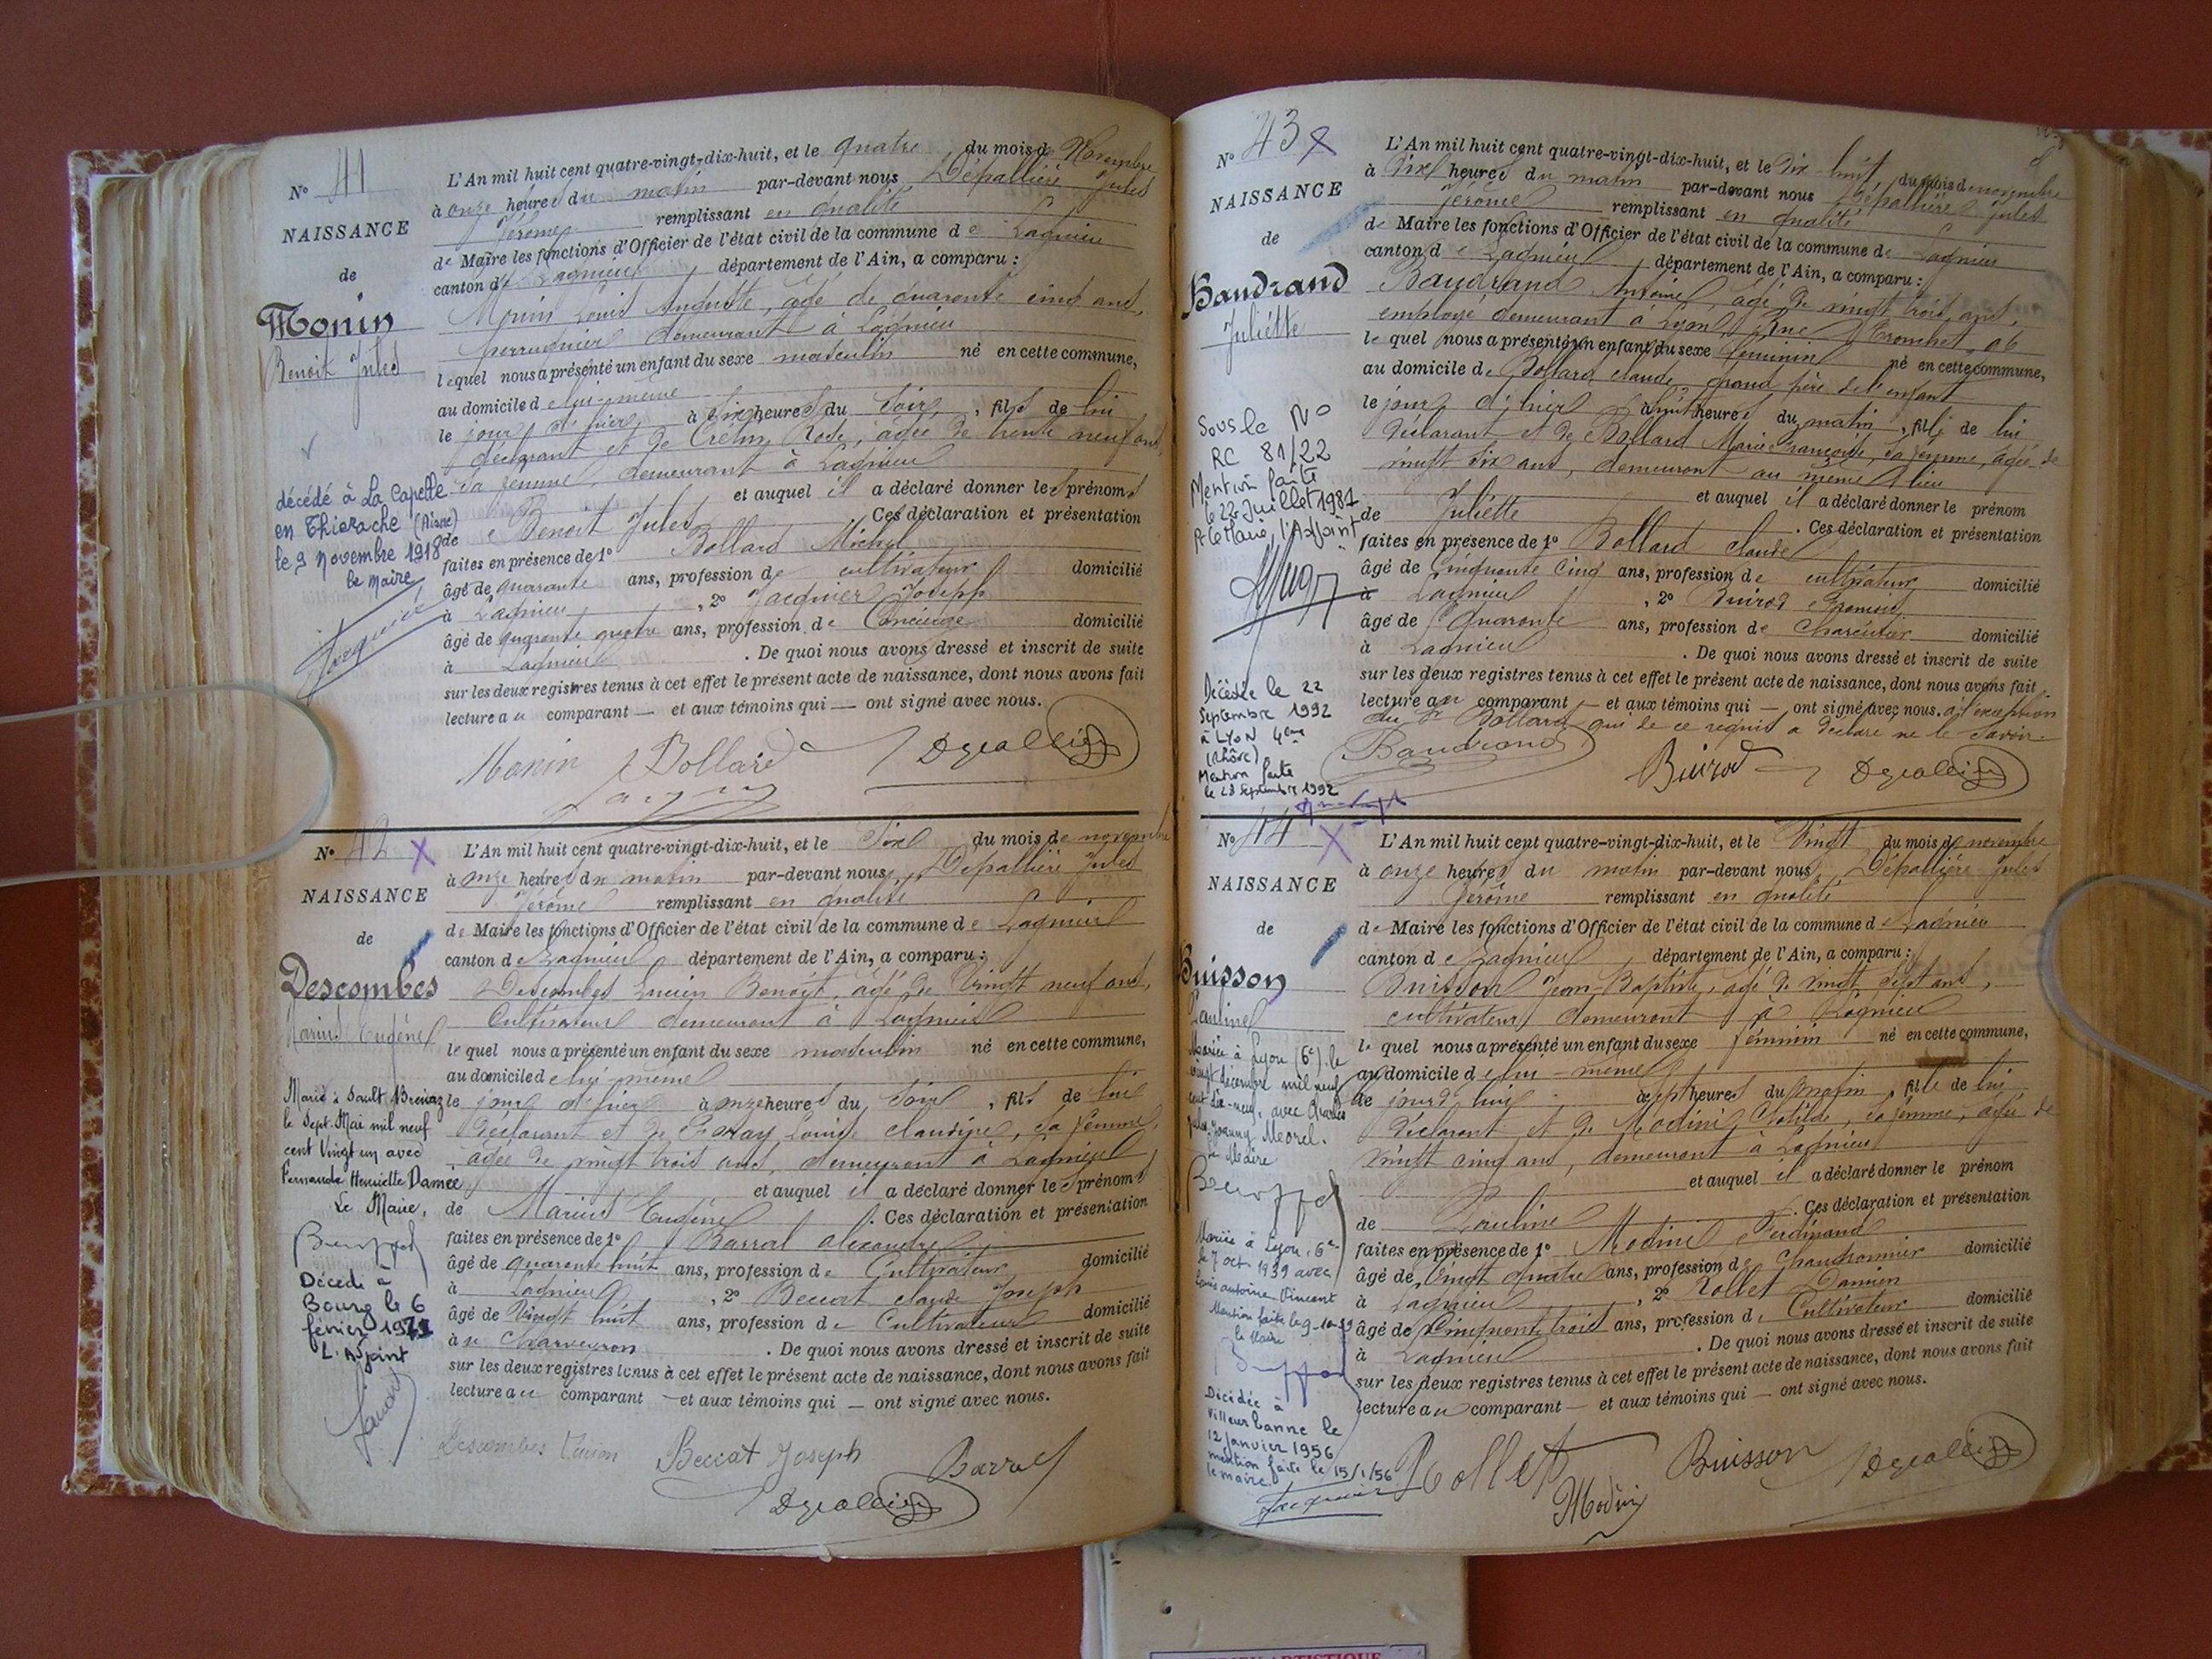 N° 41
NAISSANCE
de
Monin
Benoit Jules
décédé à La Capelle
en Thiérache (Aisne)
le 9 Novembre 1918
Le Maire
L'An mil huit cent quatre-vingt-dix-huit, et le quatre du mois de Novembre
à onze heures du matin par-devant nous Dépallière Jules
Jérôme remplissant en qualité
de Maire les fonctions d'Officier de l'état civil de la commune de Lagnieu
canton de Lagnieu département de l'Ain, a comparu :
Monin Louis Auguste, âgé de quarante cinq ans,
perruquier demeurant à Lagnieu
lequel nous a présenté un enfant du sexe masculin né en cette commune,
au domicile de lui-même
le jour d'hier à six heures du soir, fils de lui
déclarant et de Rose, âgée de trente neuf ans,
sa femme, demeurant à Lagnieu
et auquel il a déclaré donner les prénoms
de Benoit Jules Ces déclaration et présentation
faites en présence de 1° Bollard Michel
âgé de quarante ans, profession de cultivateur domicilié
à Lagnieu, 2° Jacquier Joseph
âgé de quarante quatre ans, profession de Concierge domicilié
à Lagnieu. De quoi nous avons dressé et inscrit de suite
sur les deux registres tenus à cet effet le présent acte de naissance, dont nous avons fait
lecture au comparant — et aux témoins qui — ont signé avec nous.
Monin Bollard
N° 42 X
NAISSANCE
de
Descombes
Marius Eugène
Marié à Sault Brénaz
le Sept Mai mil neuf
cent vingt un avec
Fernande Henriette Damee
Le Maire,
Décédé à
Bourg le 6
février 1971
L'Adjoint
L'An mil huit cent quatre-vingt-dix-huit, et le Six du mois de novembre
à onze heures du matin par-devant nous, Dépallière Jules
Jérôme remplissant en qualité
de Maire les fonctions d'Officier de l'état civil de la commune de Lagnieu
canton de Lagnieu département de l'Ain, a comparu :
Descombes Lucien Benoit, âgé de Vingt neuf ans,
Cultivateur demeurant à Lagnieu
lequel nous a présenté un enfant du sexe masculin né en cette commune,
au domicile de lui-même
le jour d'hier à onze heures du soir, fils de lui
déclarant et de Louise Claudine, sa femme,
âgée de vingt trois ans, demeurant à Lagnieu
et auquel il a déclaré donner les prénoms
de Marius Eugène. Ces déclaration et présentation
faites en présence de 1° Barral Alexandre
âgé de quarante huit ans, profession de Cultivateur domicilié
à Lagnieu, 2° Beccat Claude Joseph
âgé de Vingt huit ans, profession de Cultivateur domicilié
à Charveyron. De quoi nous avons dressé et inscrit de suite
sur les deux registres tenus à cet effet le présent acte de naissance, dont nous avons fait
lecture au comparant — et aux témoins qui — ont signé avec nous.
Descombes Lucien Beccat Joseph Barral
N° 43 X
NAISSANCE
de
Baudrand
Juliétte
Sous le N°
RC 81/22
Mention faite
le 22 Juillet 1981
P. le Maire, l'Adjoint
Décédée le 22
Septembre 1992
à LYON 4eme
(Rhône)
Mention faite
le 28 Septembre 1992
L'An mil huit cent quatre-vingt-dix-huit, et le Dix-huit du mois de novembre
à Dix heures du matin par-devant nous Dépallière Jules
Jérôme remplissant en qualité
de Maire les fonctions d'Officier de l'état civil de la commune de Lagnieu
canton de Lagnieu département de l'Ain, a comparu :
Baudrand Antoine, âgé de vingt trois ans,
employé demeurant à Lyon, Rue Tronchet
lequel nous a présenté un enfant du sexe féminin né en cette commune,
au domicile de Bollard Claude, grand père de l'enfant
le jour d'hier à huit heures du matin, fille de lui
déclarant et de Bollard Marie Françoise, sa femme, âgée de
vingt six ans, demeurant au même lieu
et auquel il a déclaré donner le prénom
de Juliétte. Ces déclaration et présentation
faites en présence de 1° Bollard Claude
âgé de Cinquante Cinq ans, profession de cultivateur domicilié
à Lagnieu, 2° Buirod François
âgé de Quarante ans, profession de Charcutier domicilié
à Lagnieu. De quoi nous avons dressé et inscrit de suite
sur les deux registres tenus à cet effet le présent acte de naissance, dont nous avons fait
lecture au comparant — et aux témoins qui — ont signé avec nous. à l'exception
du Sr Bollard qui de ce requis a déclaré ne le savoir
Baudrand Buirod
N° 44 X
NAISSANCE
de
Buisson
Pauline
Mariée à Lyon (6e), le
vingt décembre mil neuf
cent dix-neuf, avec Charles
Joanny Morel.
Le Maire
Mariée à Lyon, 6e
le 7 oct 1939 avec
Louis Antoine Vincent
Mention faite le 9-10-39
le Maire
Décédée à
Villeurbanne le
12 Janvier 1956
mention faite le 15/1/56
le maire
L'An mil huit cent quatre-vingt-dix-huit, et le Vingt du mois de novembre
à onze heures du matin par-devant nous, Dépallière Jules
Jérôme remplissant en qualité
de Maire les fonctions d'Officier de l'état civil de la commune de Lagnieu
canton de Lagnieu département de l'Ain, a comparu :
Buisson Jean-Baptiste, âgé de vingt sept ans,
cultivateur demeurant à Lagnieu
lequel nous a présenté un enfant du sexe féminin né en cette commune,
au domicile de lui-même
le jourd'hui à sept heures du matin, fille de lui
déclarant et de Modini Clotilde, sa femme, âgée de
vingt cinq ans, demeurant à Lagnieu
et auquel il a déclaré donner le prénom
de Pauline. Ces déclaration et présentation
faites en présence de 1° Modini Ferdinand
âgé de Vingt quatre ans, profession de Chaudronnier domicilié
à Lagnieu, 2° Rollet Damien
âgé de Cinquante trois ans, profession de Cultivateur domicilié
à Lagnieu. De quoi nous avons dressé et inscrit de suite
sur les deux registres tenus à cet effet le présent acte de naissance, dont nous avons fait
lecture au comparant — et aux témoins qui — ont signé avec nous.
Rollet Modini Buisson